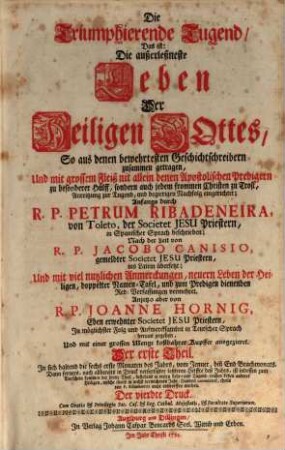 Die
Triumphierende Tugend/
Das ist:
Die außerleßneste
Leben
Der
Heiligen GOttes/
So auß denen bewehrtesten Geschichtschreibern
zusammen getragen,
Und mit grossem Fleiß nit allein denen Apostolischen Predigern
zu besonderer Hülff, sondern auch jedem frommen Christen zu Trost,
Anreitzung zur Tugend, und begierigen Nachfolg eingerichtet;
Anfangs durch
R. P. PETRUM RIBADENEIRA,
von Toleto, der Societet JESU Priestern,
in Spanischer Sprach beschrieben;
Nach der Zeit von
R. P. JACOBO CANISIO,
gemeldter Societet JESU Priestern,
ins Latein übersetzt;
Und mit viel nutzlichen Anmerckungen, neuern Leben der Hei-
ligen, doppelter Namen-Tafel, und zum Predigen dienenden
Red-Verfassungen vermehret.
Anjetzo aber von
R. P. JOANNE HORNIG,
Eben erwehnter Societet JESU Priestern,
In möglichster Folg und Aufmercksamkeit in Teutscher Sprach
herauß gegeben,
Und mit einer grossen Menge kostbahrer Kupffer außgezieret.
Der erste Theil.
In sich haltend die sechs erste Monaten deß Jahrs, vom Jenner, biß End Brachmonats.
Der vierdte Druck.
Augspurg und Dillingen,
In Verlag Johann Caspar Bencards Seel. Wittib und Erben.
Im Jahr Christi